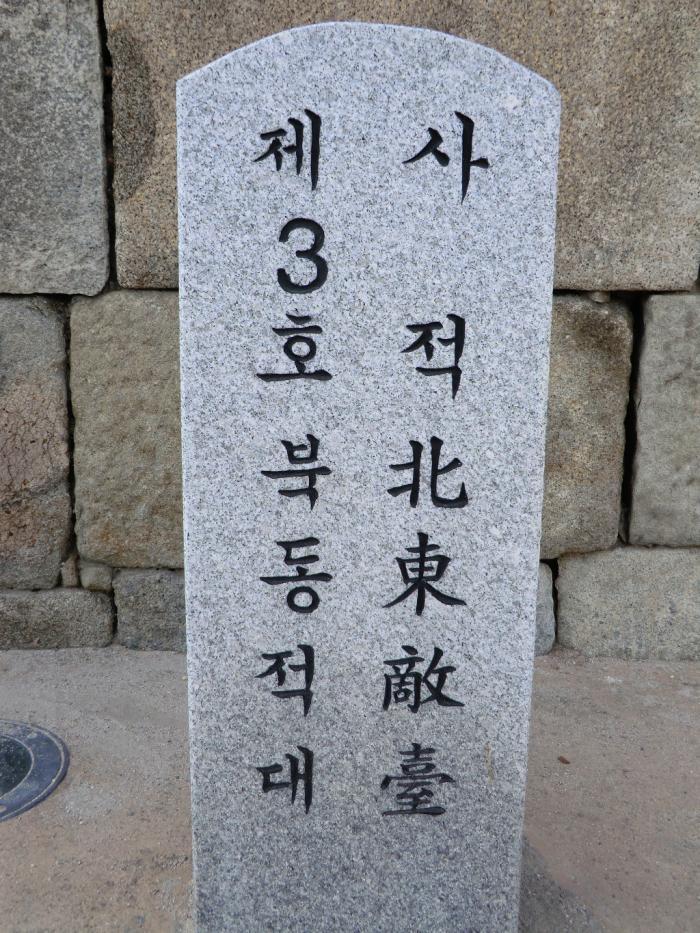 사적
제3호
北東敵臺
북동적대